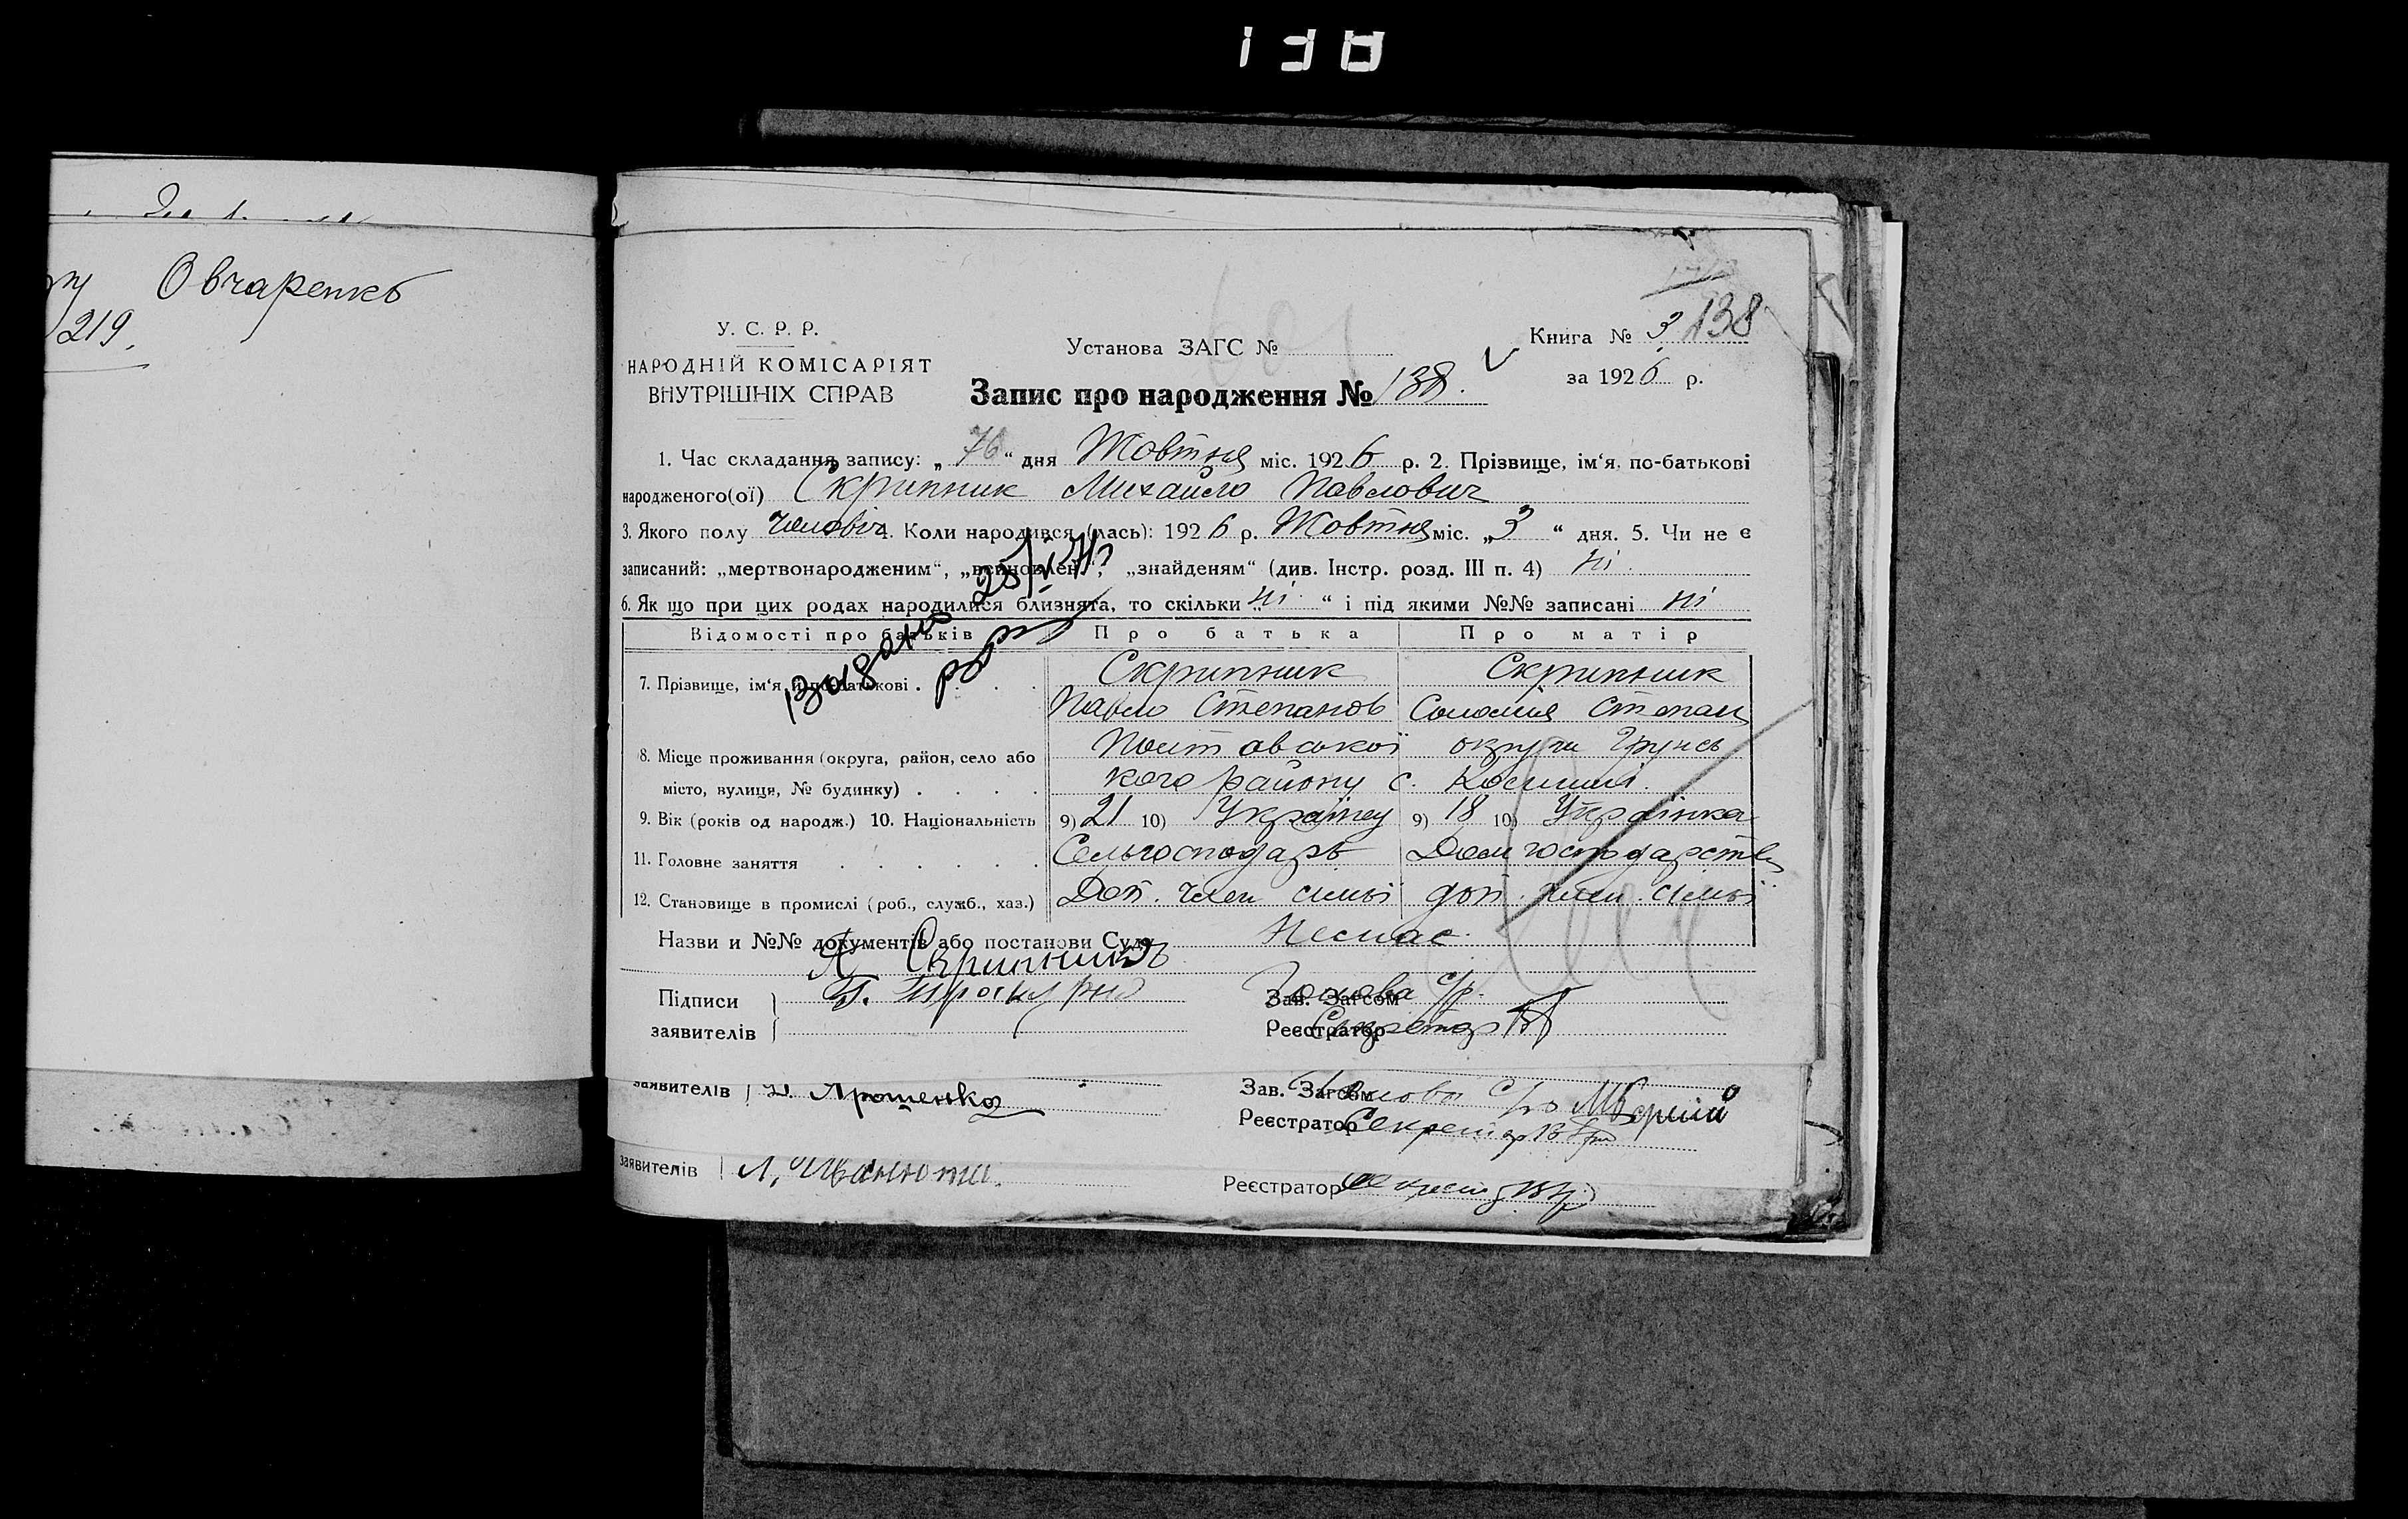 138
Овчаренко
219.
У. С. Р. Р.
НАРОДНІЙ КОМІСАРІЯТ
ВНУТРІШНІХ СПРАВ
Установа ЗАГС №
Книга № 3. 138
за 1926 р.
Запис про народження № 138.
1. Час складання запису: „ 76 “ дня Жовтня міс. 1926 р. 2. Прізвище, ім‘я, по-батькові
народженого(ої) Скрипник Михайло Павлович
3. Якого полу чоловіч. 4. Коли народився (лась): 1926 р. Жовтня міс. „ 3 “ дня. 5. Чи не є
записаний: „мертвонародженим“, „всиновлен“, „знайденям“ (див. Інстр. розд. III п. 4) ні.
6. Як що при цих родах народилися близнята, то скільки ні “ і під якими №№ записані ні
Відомості про батьків Про батька Про матір
7. Прізвище, ім‘я й по-батькові . . . . Скрипник Скрипник
Павло Степанов Соломія Степан
8. Місце проживання (округа, район, село або Полтавської округи Грунсь
місто, вулиця, № будинку) . . . . кого району с.
9. Вік (років од народж.) 10. Національність 9) 21 10) Українец 9) 18 10) Українка
11. Головне заняття . . . . . . Сельгосподарь Дом господарство
12. Становище в промислі (роб., служб., хаз.) Доп. член сімьї доп. член. сімьї
Назви и №№ документів або постанови Суду Немає.
П. Скрипник
Підписи
заявителів
Зав. Загсом Голова с/р.
Реєстратор Секретар
заявителів Ярошенко
Зав. Загсом Голова с/р
Реєстратор Секретар
заявителів Л. Иванюта.
Реєстратор